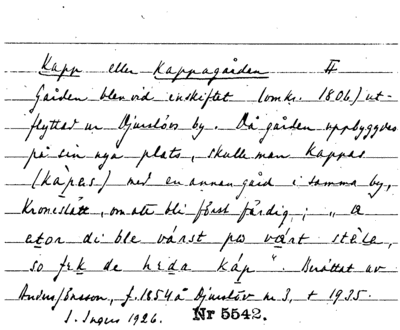 Kapp eller Kappagården #
Gården blev vid enskiftet (omkr. 1806) ut-
flyttad ur Djurslövs by. Då gården uppbyggdes
på sin nya plats, skulle man kappas
(kàpas) med en annan gård i samma by,
Kroneslätt, om att bli först färdig; "
etor di ble vanst po vart stèle,
so fek de heda káp". Berättat av
Anders Jönsson, f. 1854 å Djurslöv nr 3, + 1935.
I. Ingers 1926. Nr 5542.